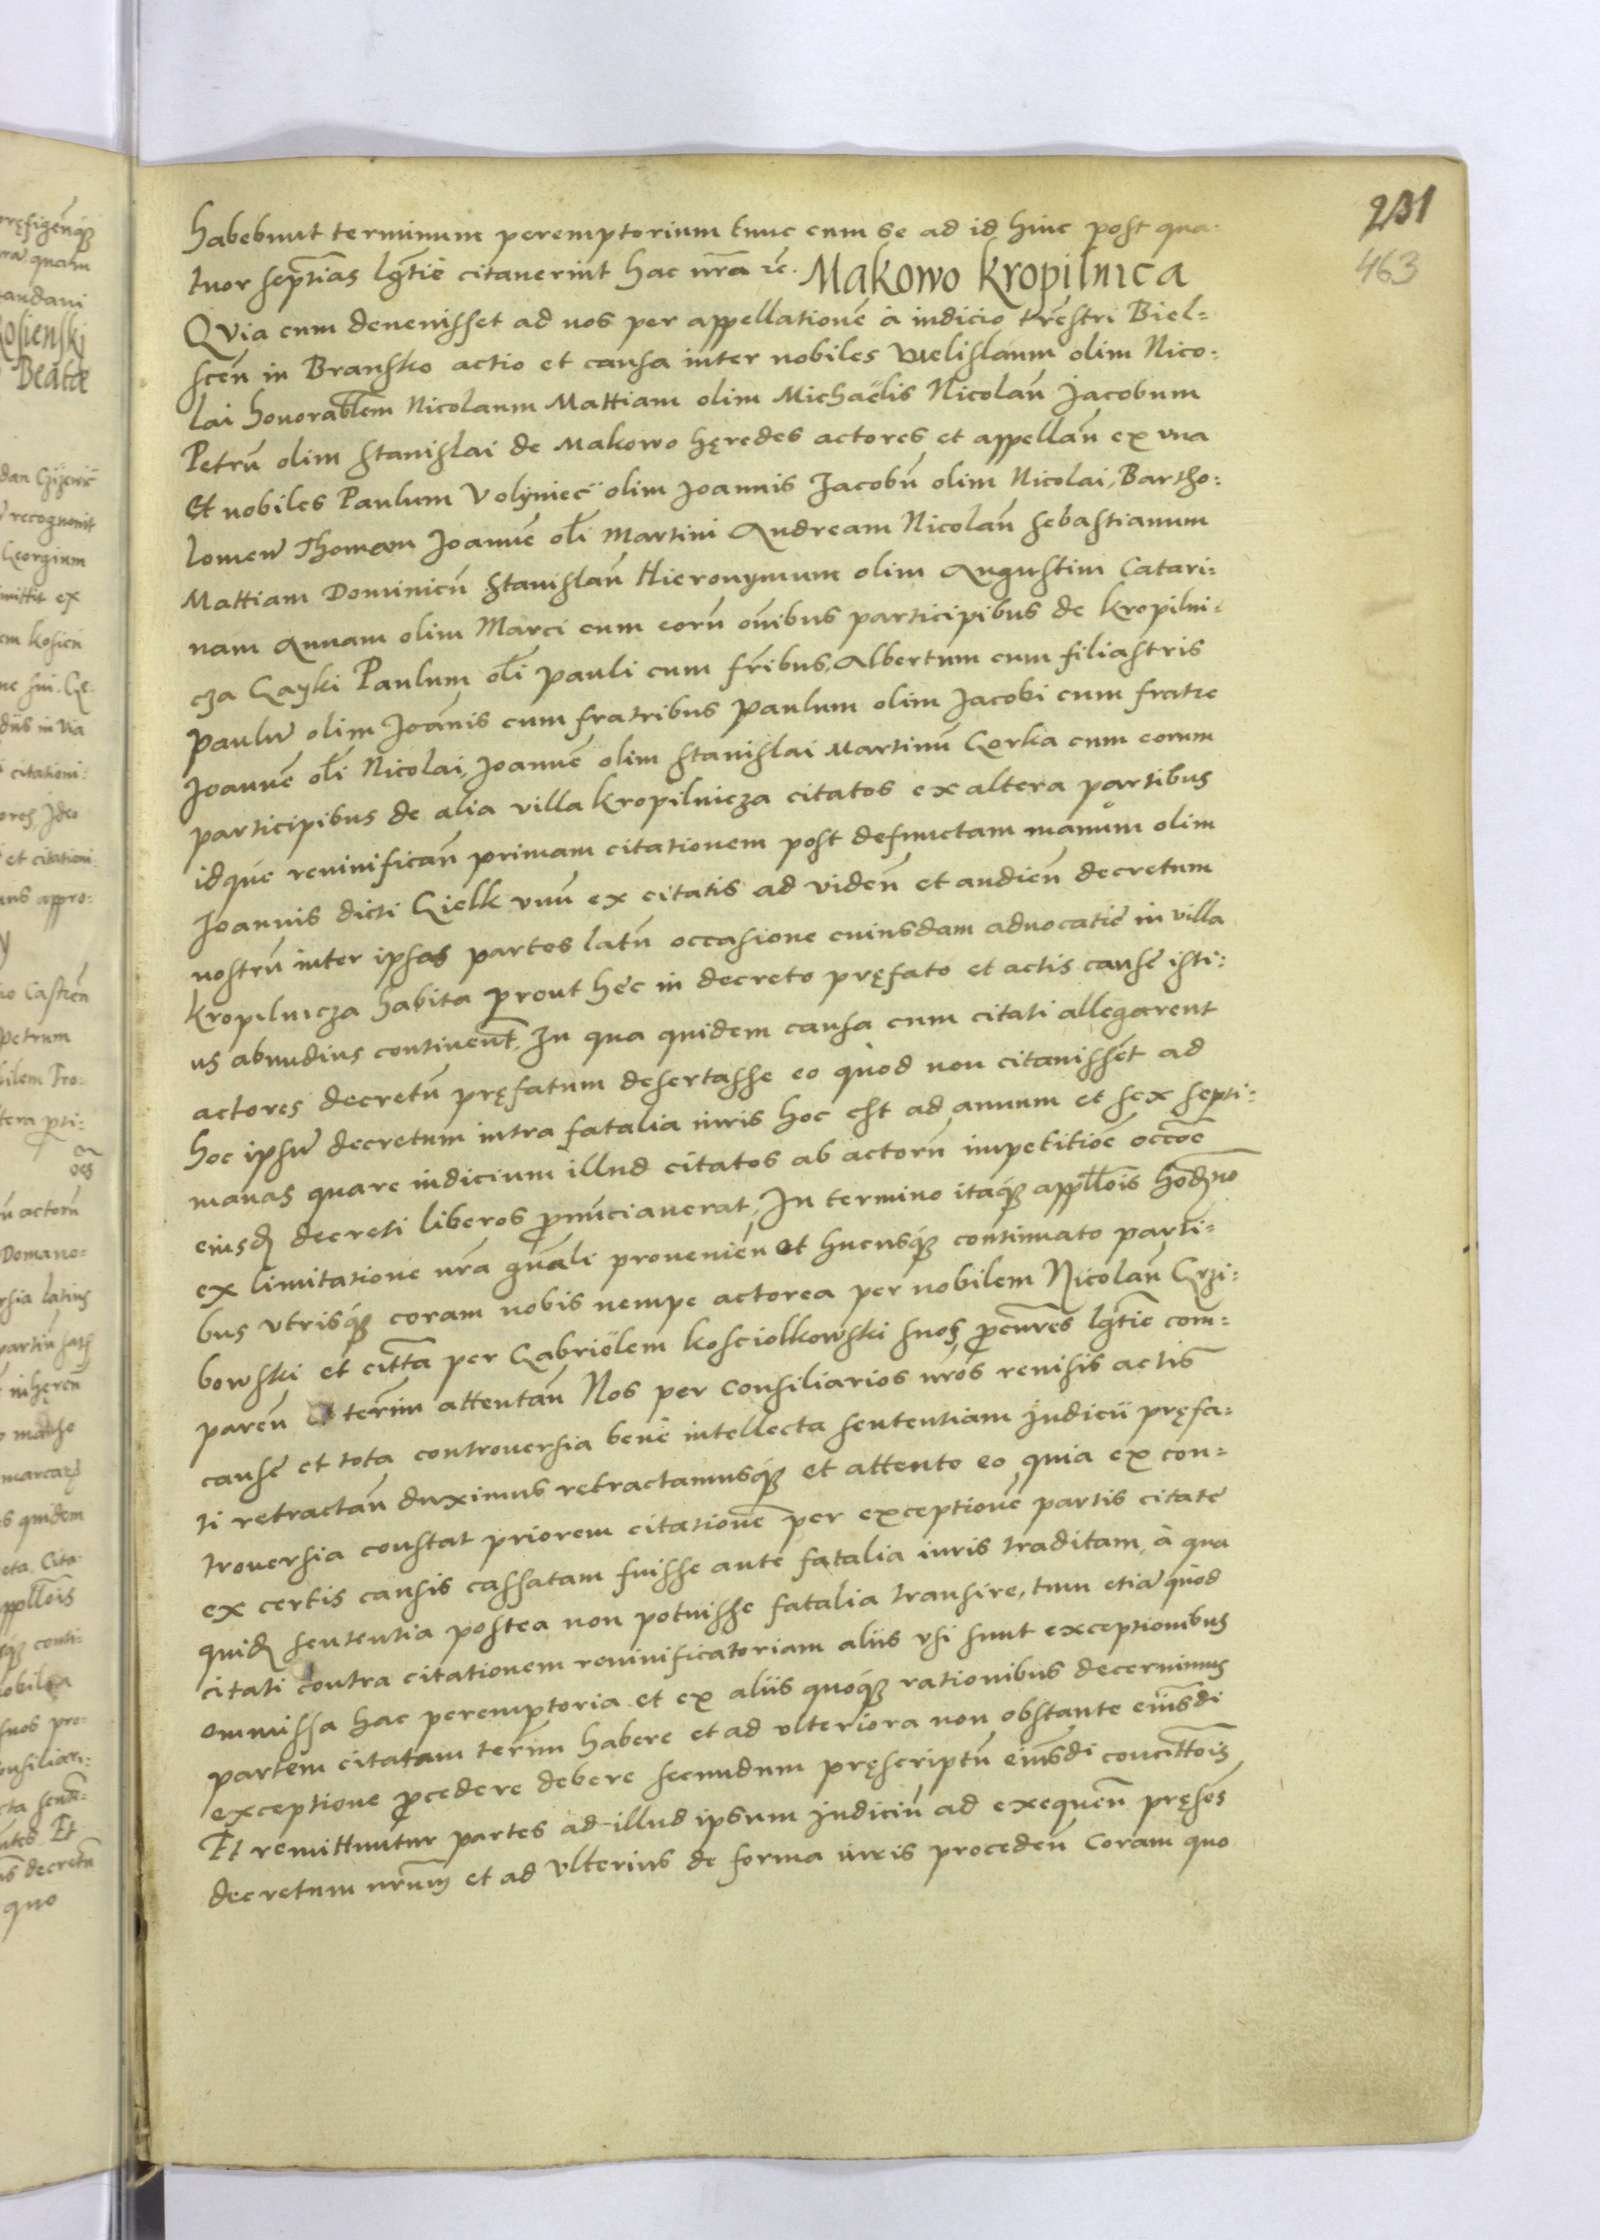 231
463
habebunt terminum peremptorium tunc cum se ad id hinc post qua-
tuor septias lgtie citaverint hac nra rc. Makowo Kropilnica
Quia cum devenisset ad nos per appellationē à iudicio trēstri Biel-
scen̄ in Bransko actio et causa inter nobiles Welislaum olim Nico-
lai honorablem Nicolaum Mattiam olim Michaëlis Nicolaū Jacobum
Petrū olim Stanislai de Makowo hęredes actores et appellan̄ ex una
Et nobiles Paulum Volÿniec olim Joannis Jacobū olim Nicolai, Bartho-
lomeū Thomam Joannē oli Martini Andream Nicolaū Sebastianum
Mattiam Dominicū Stanislaū Hieronymum olim Augustini Catari-
nam Annam olim Marci cum eorū oībus participibus de Kropilni-
cza Gayki Paulum oli Pauli cum fribus, Albertum cum filiastris
Paulū olim Joānis cum fratribus Paulum olim Jacobi cum fratre
Joannē oli Nicolai, Joannē olim Stanislai Martinū Gorka cum eorum
participibus de alia villa Kropilnicza citatos ex altera partibus
idque revivifican̄ primam citationem post defunctam manum olim
Joannis dicti Gielk unū ex citatis ad viden̄ et audien̄ decretum
nostrū inter ipsas partes latū occasione cuiusdam advocatiē in villa
Kropilnicza habita prout hęc in decreto pręfato et actis causę isti-
us abundius continent. In qua quidem causa cum citati allegarent
actores decretū pręfatum desertasse eo quòd non citavissēt ad
hoc ipsū decretum intra fatalia iuris hoc est ad annum et sex septi-
manas quare iudicium illud citatos ab actorū impetitiōe occōe
eiusd decreti liberos pronūciaverat, In termino itaq appllōis hodno
ex limitatione nrā gnāli provenien̄ et hucusq continuato parti-
bus utrisq coram nobis nempe actorea per nobilem Nicolaū Grzi-
bowski et citta per Gabriëlem Kosciolkowski suos pcures lgtie com-
paren̄ terim attentan̄ Nos per consiliarios nros revisis actis
causę et tota controversia bene intellecta sententiam iudicii pręfa-
ti retractan̄ duximus retractamusq et attento eo quia ex con-
troversia constat priorem citationē per exceptionē partis citatę
ex certis causis cassatam fuisse ante fatalia iuris traditam, à qua
quid sententia postea non potuisse fatalia transire, tum etiā quòd
citati contra citationem revivificatoriam aliis usi sunt exceptionibus
ommissa hac peremptoria et ex aliis quoq rationibus decernimus
partem citatam terim habere et ad ulteriora non obstante eiusdi
exceptione pcedere debere secundum pręscriptū eiusdi concittōis
Et remittuntur partes ad illud ipsum iudiciū ad exequen̄ pręsēs
decretum nrum et ad ulterius de forma iuris proceden̄ Coram quo